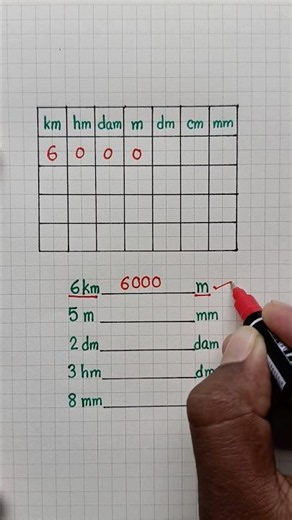 km hm dam m dm cm mm
6 0 0 0
6 km 6000 m
5 m mm
2 dm dam
3 hm
8 mm